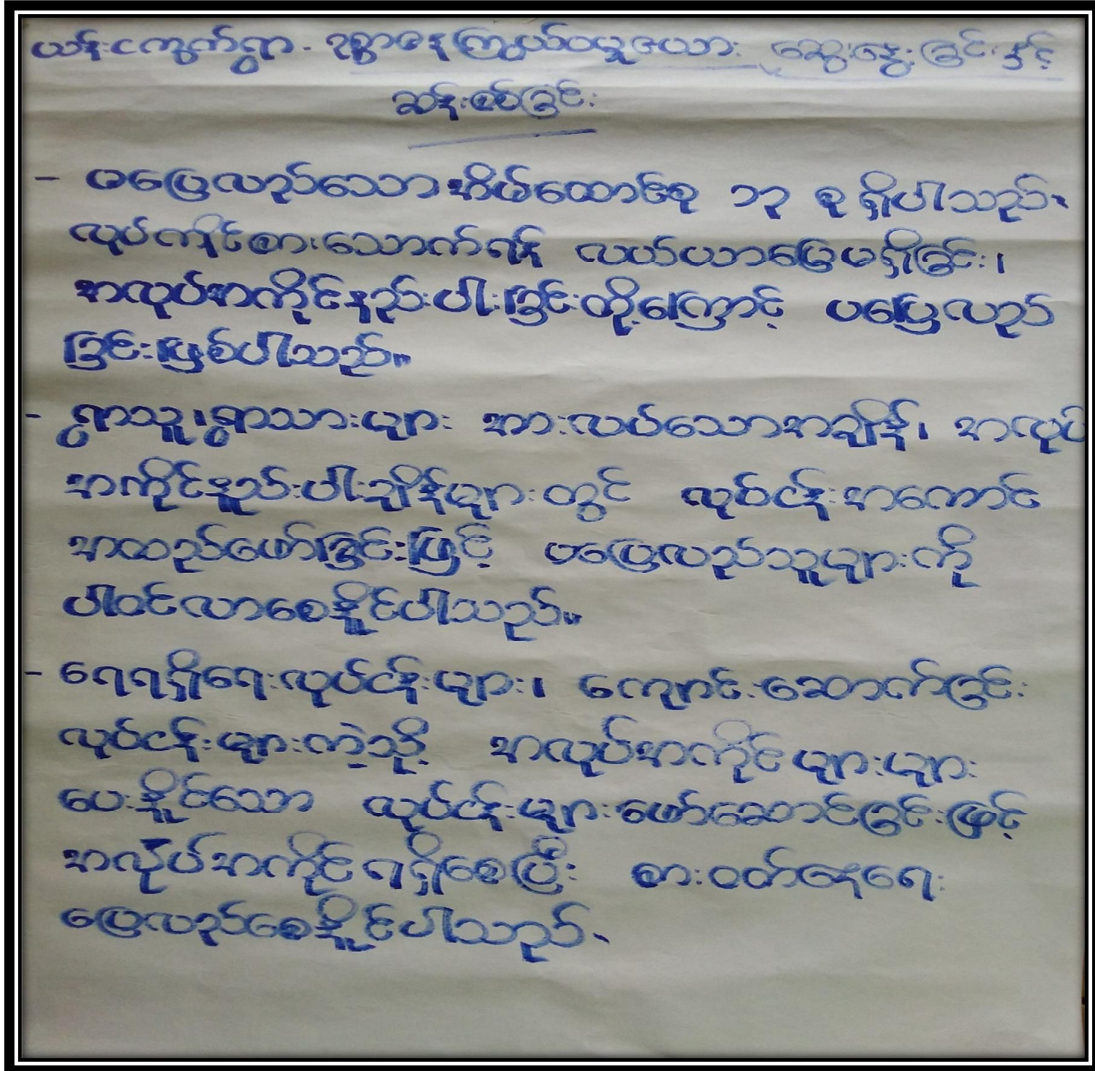 ယန်းငကွက်ရွာ - ဥစ္စာဓနကြွယ်ဝမှုဇယား ဆွေးနွေးခြင်းနှင့်
ဆန်းစစ်ခြင်း
- မပြေလည်သောအိမ်ထောင်စု ၁၃ စု ရှိပါသည်။
လုပ်ကိုင်စားသောက်ရန် လယ်ယာမြေမရှိခြင်း၊
အလုပ်အကိုင်နည်းပါးခြင်းတို့ကြောင့် မပြေလည်
ခြင်းဖြစ်ပါသည်။
- ရွာသူ၊ရွာသားများ အားလပ်သောအချိန်၊ အလုပ်
အကိုင်နည်းပါးချိန်များတွင် လုပ်ငန်းအကောင်
အထည်ဖော်ခြင်းဖြင့် မပြေလည်သူများကို
ပါဝင်လာစေနိုင်ပါသည်။
- ရေရရှိရေးလုပ်ငန်းများ၊ ကျောင်းဆောက်ခြင်း
လုပ်ငန်းများကဲ့သို့ အလုပ်အကိုင်များများ
ပေးနိုင်သော လုပ်ငန်းများဖော်ဆောင်ခြင်းဖြင့်
အလုပ်အကိုင်ရရှိစေပြီး စားဝတ်နေရေး
ပြေလည်စေနိုင်ပါသည်။